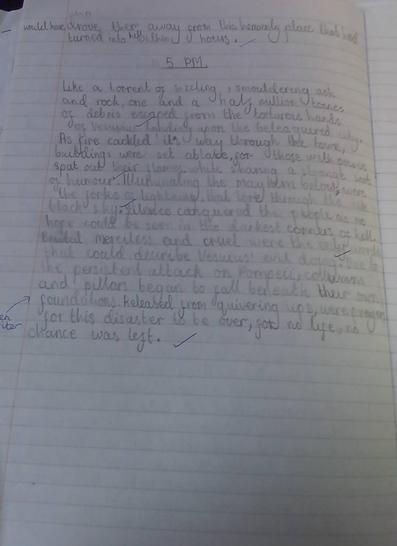 would have drove them away from this heavenly place that had
turned into hell within hours.
5 PM
Like a torrent of sizzling, smouldering ash
and rock, one and a half million tonnes
of debris escaped from the torturous hands
of Vesuvius landing upon the beleaguered city.
As fire cackled it's way through the town,
buildings were set ablaze, for those with power
spat out their flames while sharing a strange sense
of humour. Illuminating the mayhem below, were
the forks of lightning, that tore through the
black sky. Silence conquered the people as no
hope could be seen in the darkest corners of hell.
Brutal, merceless and cruel were the only words
that could describe Vesuvius' evil doing. Due to
the persistent attack on Pompeii, columns
and pillars began to fall beneath their own
foundations. Released from quivering lips, were prayers
for this disaster to be over, for no life, no
chance was left.